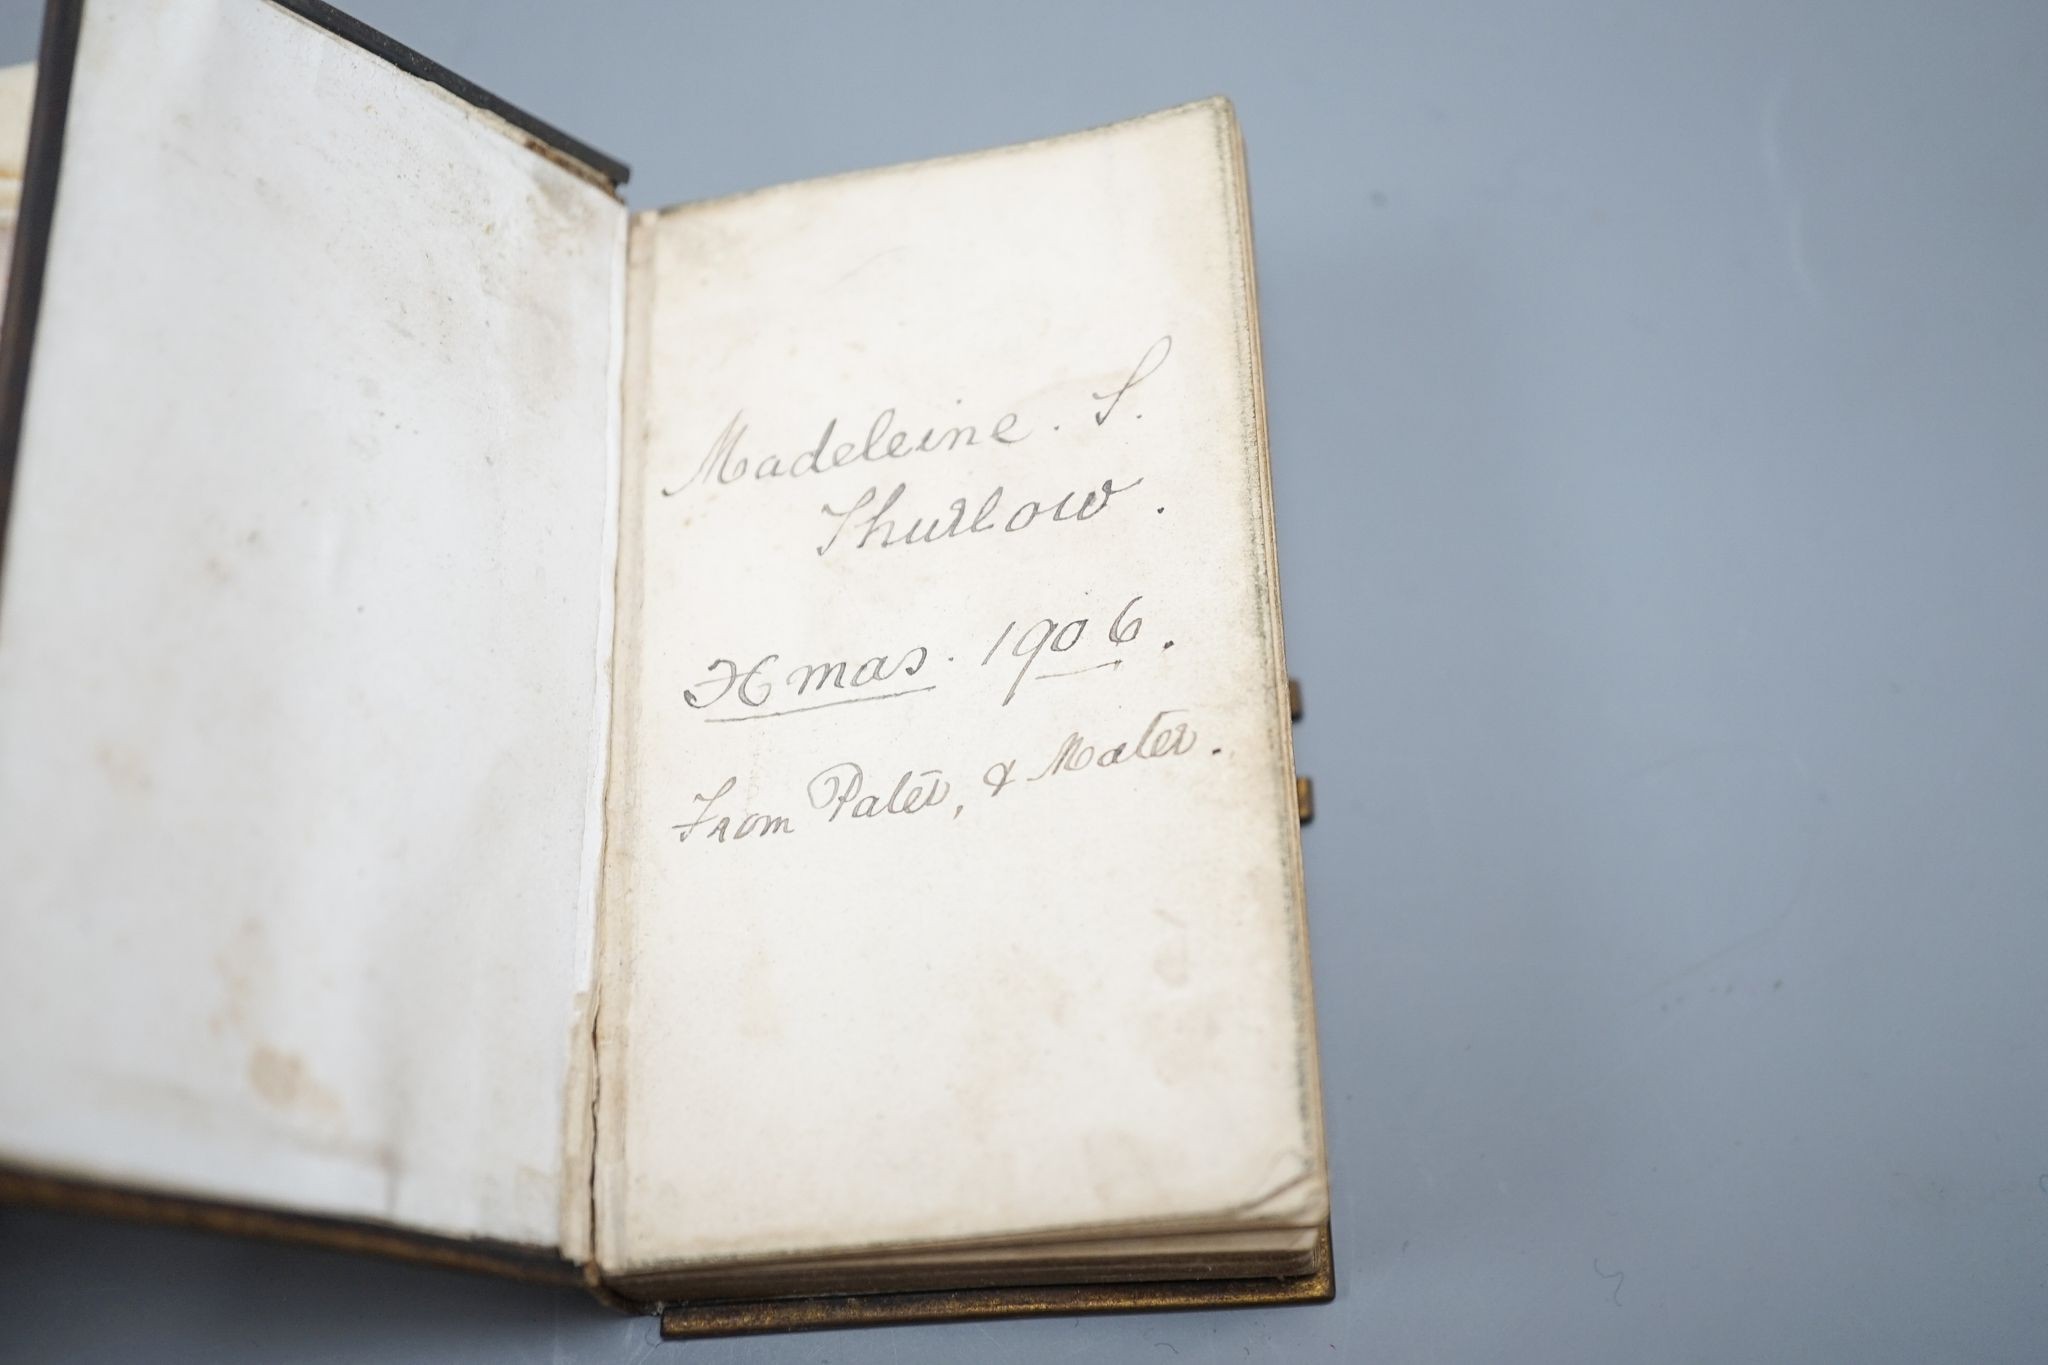 Madeleine. S.
Thurlow.
Xmas. 1906.
From Pater, & Mater.